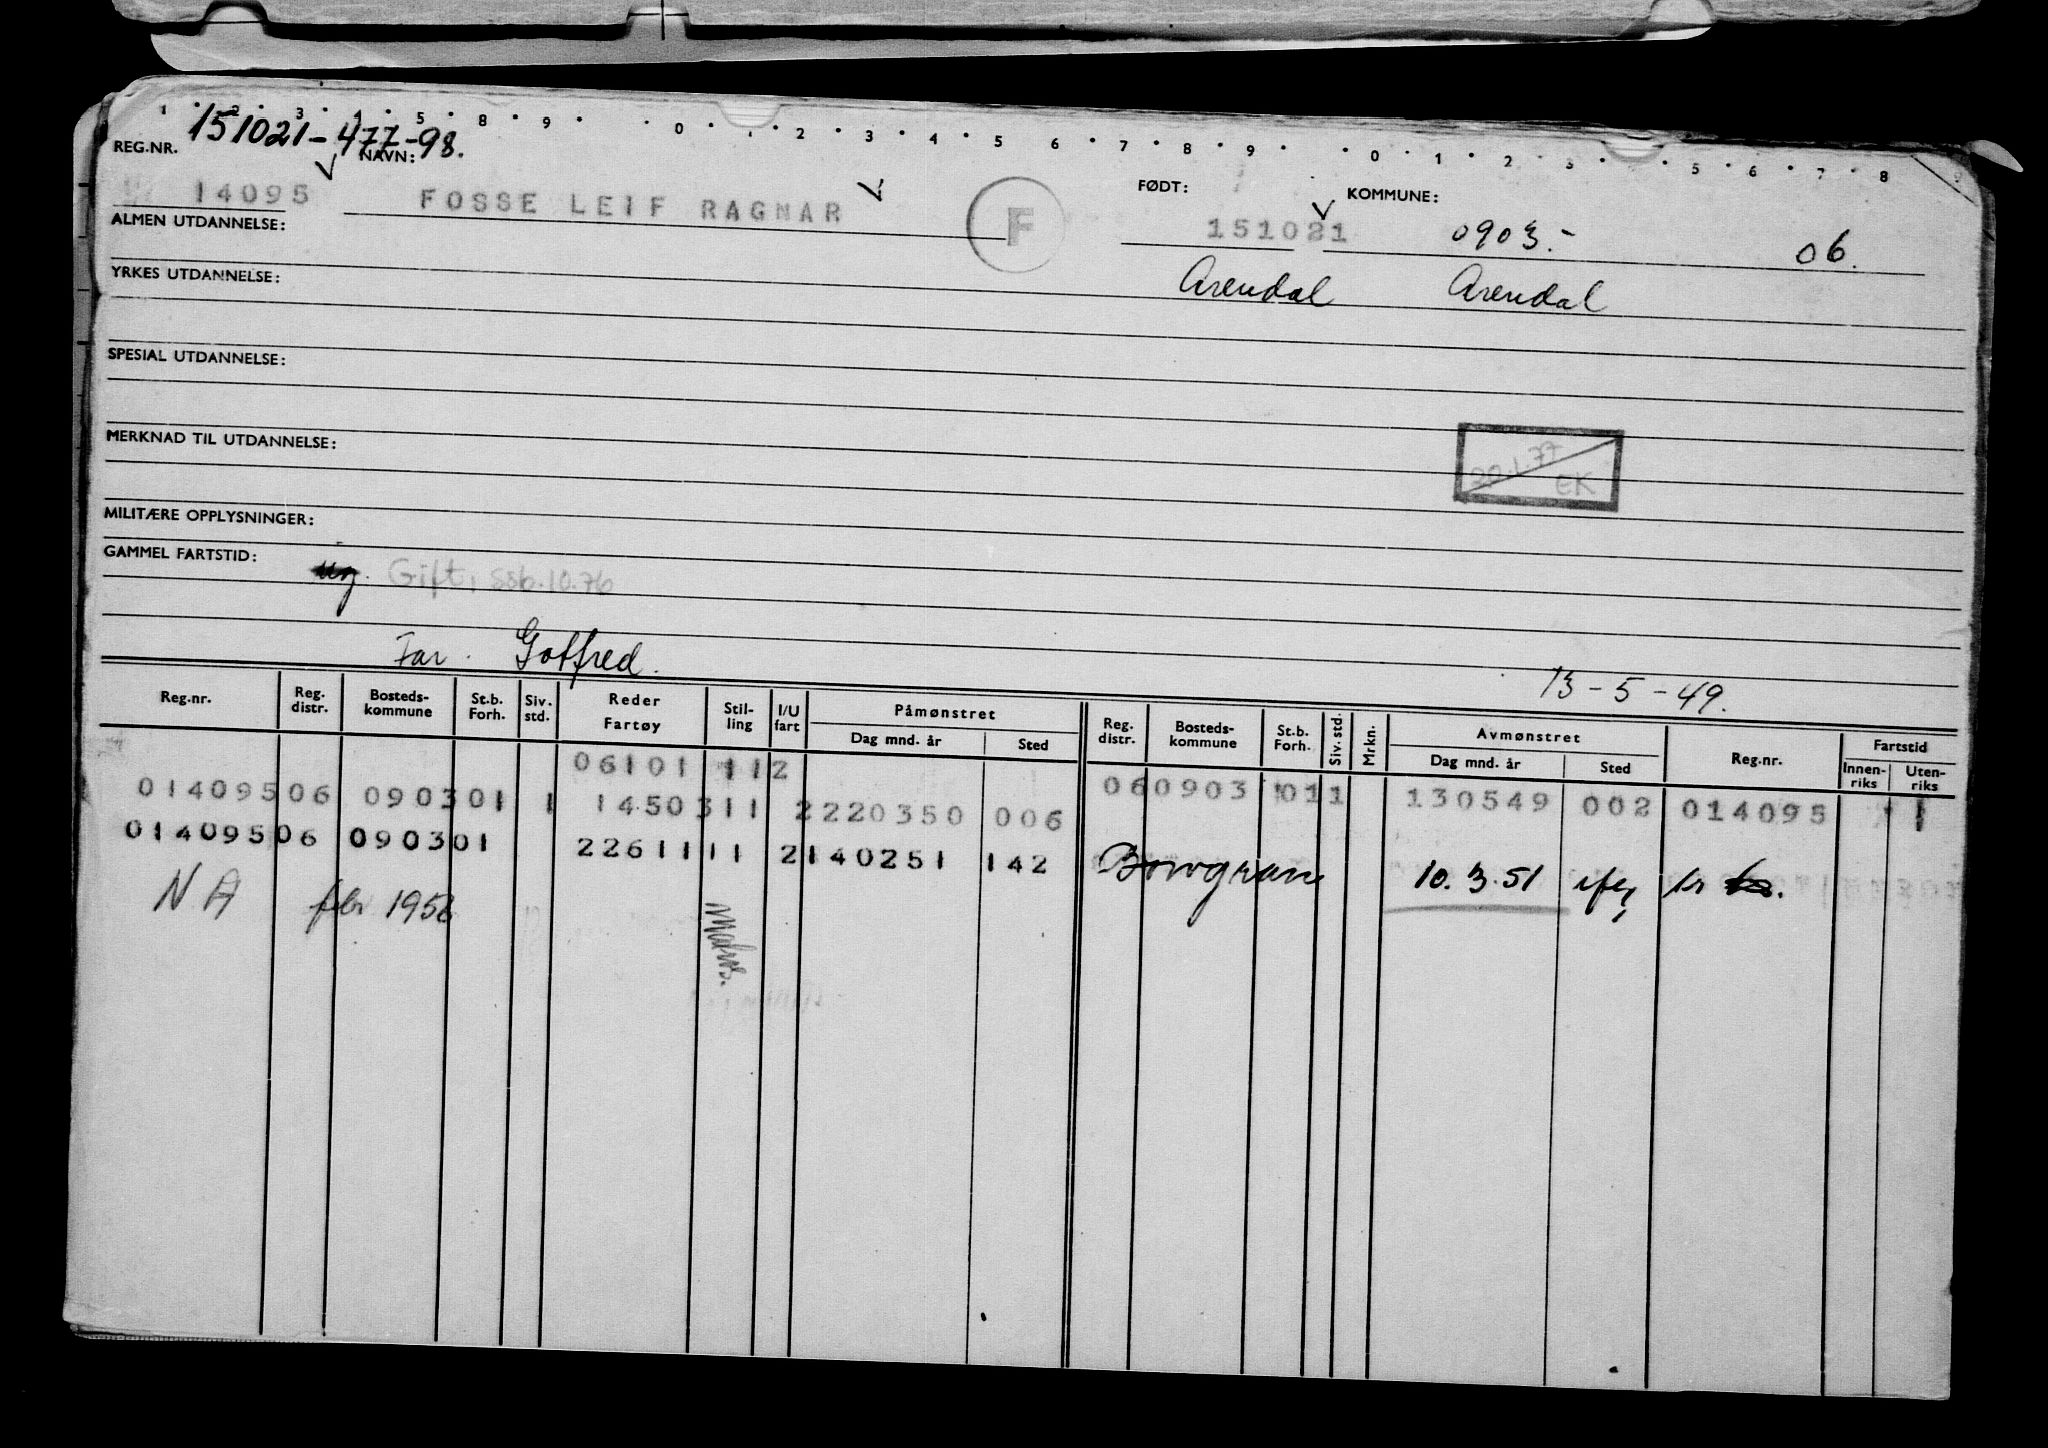 1 2 3 4 5 8 9 0 1 2 3 4 5 6 7 8 9 0 1 2 3 5 6 7 8
REG.NR. 151021-477-98.
NAVN: FØDT: KOMMUNE:
14095 FOSSE LEIF RAGNAR F 151021 0903.- 06.
ALMEN UTDANNELSE:
Arendal Arendal
YRKES UTDANNELSE:
SPESIAL UTDANNELSE:
MERKNAD TIL UTDANNELSE:
20.1.77
EK
MILITÆRE OPPLYSNINGER:
GAMMEL FARTSTID:
ug. Gift, ssb.10.76
Far. Gotfred.
13-5-49.
Reg.nr. Reg. distr. Bosteds-kommune St.b. Forh. Siv. std. Reder Fartøy Stil-ling I/U fart Påmønstret Dag mnd. år Sted Reg. distr. Bosteds-kommune St.b. Forh. Siv. std. Mrkn. Avmønstret Dag mnd. år Sted Reg.nr. Fartstid Innen-riks Uten-riks
06101 112 060903 1011 130549 002 014095 1
01409506 090301 1 1450311 2220350 006
01409506 090301 2261111 2140251 142 10.3.51
NA febr 1956